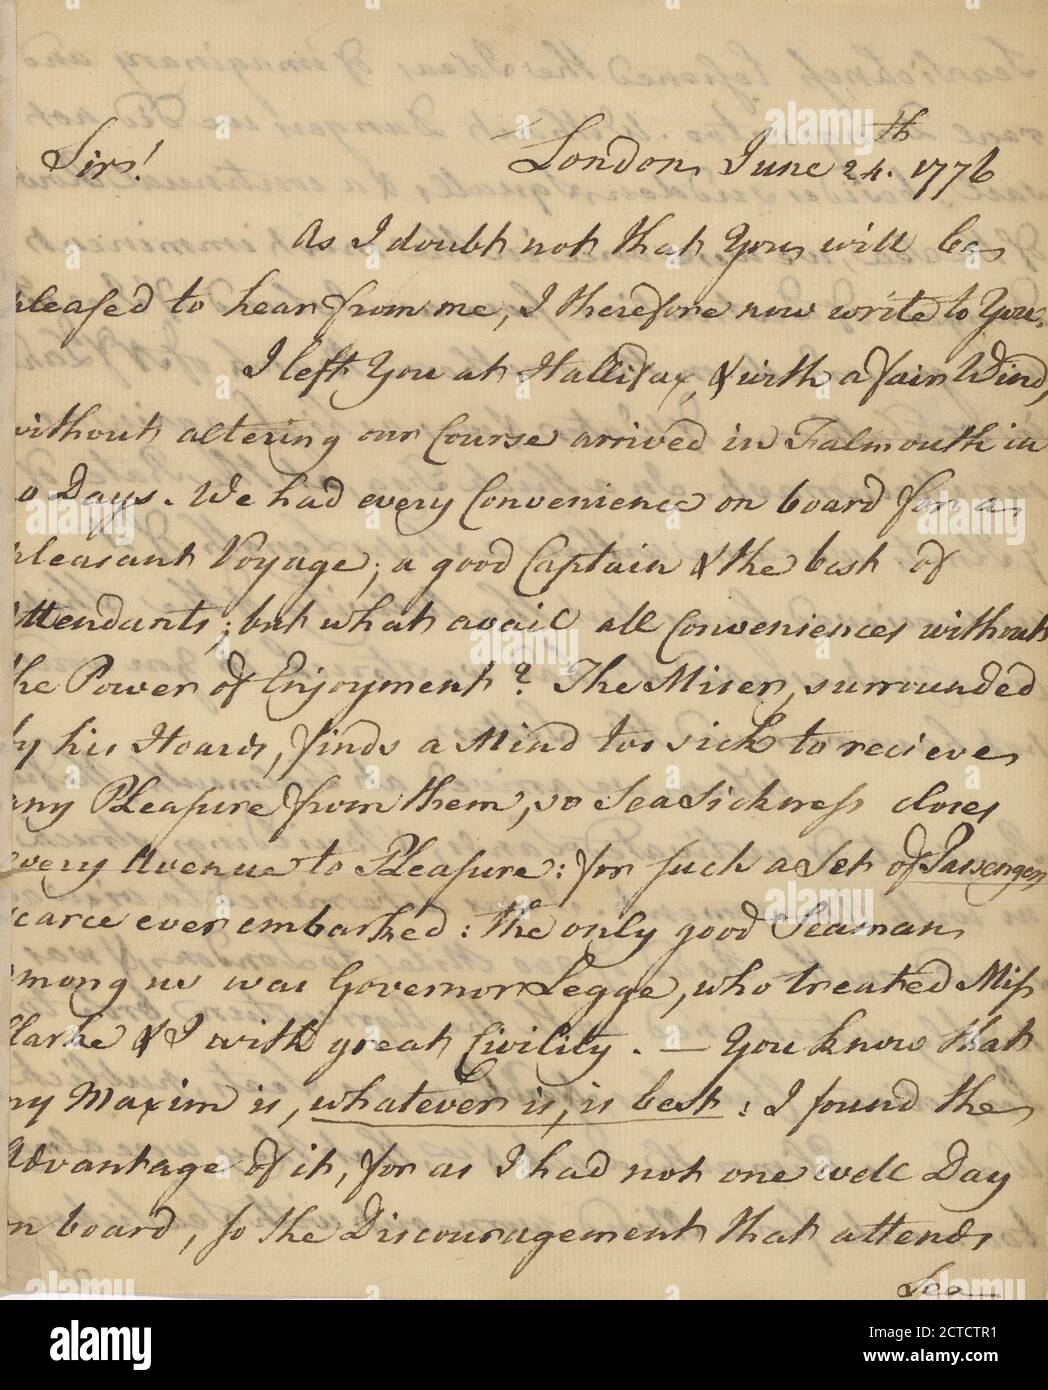 London June 24.th 1776
Sirs!
As I doubt not that You will be
pleased to hear from me, I therefore now write to You.
I left You at Hallifax, & with a fair Wind,
without altering our Course arrived in Falmouth in
0 Days. We had every Convenience on board for a
pleasant Voyage; a good Captain & the best of
Attendants; but what avail all Conveniences without
the Power of Enjoyment? The Miser, surrounded
by his Hoards, finds a Mind too sick to recieve
any Pleasure from them, so Sea Sickness closes
every Avenue to Pleasure: for such a Set of Passengers
scarce ever embarked: the only good Seaman
among us was Governor Legge, who treated Miss
Clarke & I with great Civility. — You know that
my Maxim is, whatever is, is best: I found the
Advantage of it, for as I had not one well Day
on board, so the Discouragement that attends
Sea
alamy
alamy
alamy
alamy
alamy
alamy
alamy
alamy
alamy
Image ID: 2CTCTR1
www.alamy.com